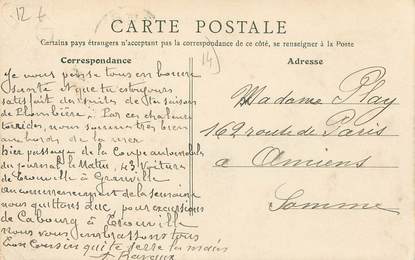 12 f
CARTE POSTALE
Certains pays étrangers n'acceptant pas la correspondance de ce côté, se renseigner à la Poste
Correspondance
14)
Adresse
Je vous pense tous en bonne
santé et que tu es toujours
satisfait des suites de ta saison
de Plombière à Par ces chaleurs
torrides, nous sommes très bien
au bords de la mer
hier passage de la Coupe automobiles
du journal le Matin, 43 Voitures
de Trouville à Granville
au commencement de la semaine
nous quittons Luc, pour excursions
de Cabourg à Trouville
nous vous embrassons tous
Ton Cousin qui te serre la main
Madame Play
162 route de Paris
à Amiens
Somme